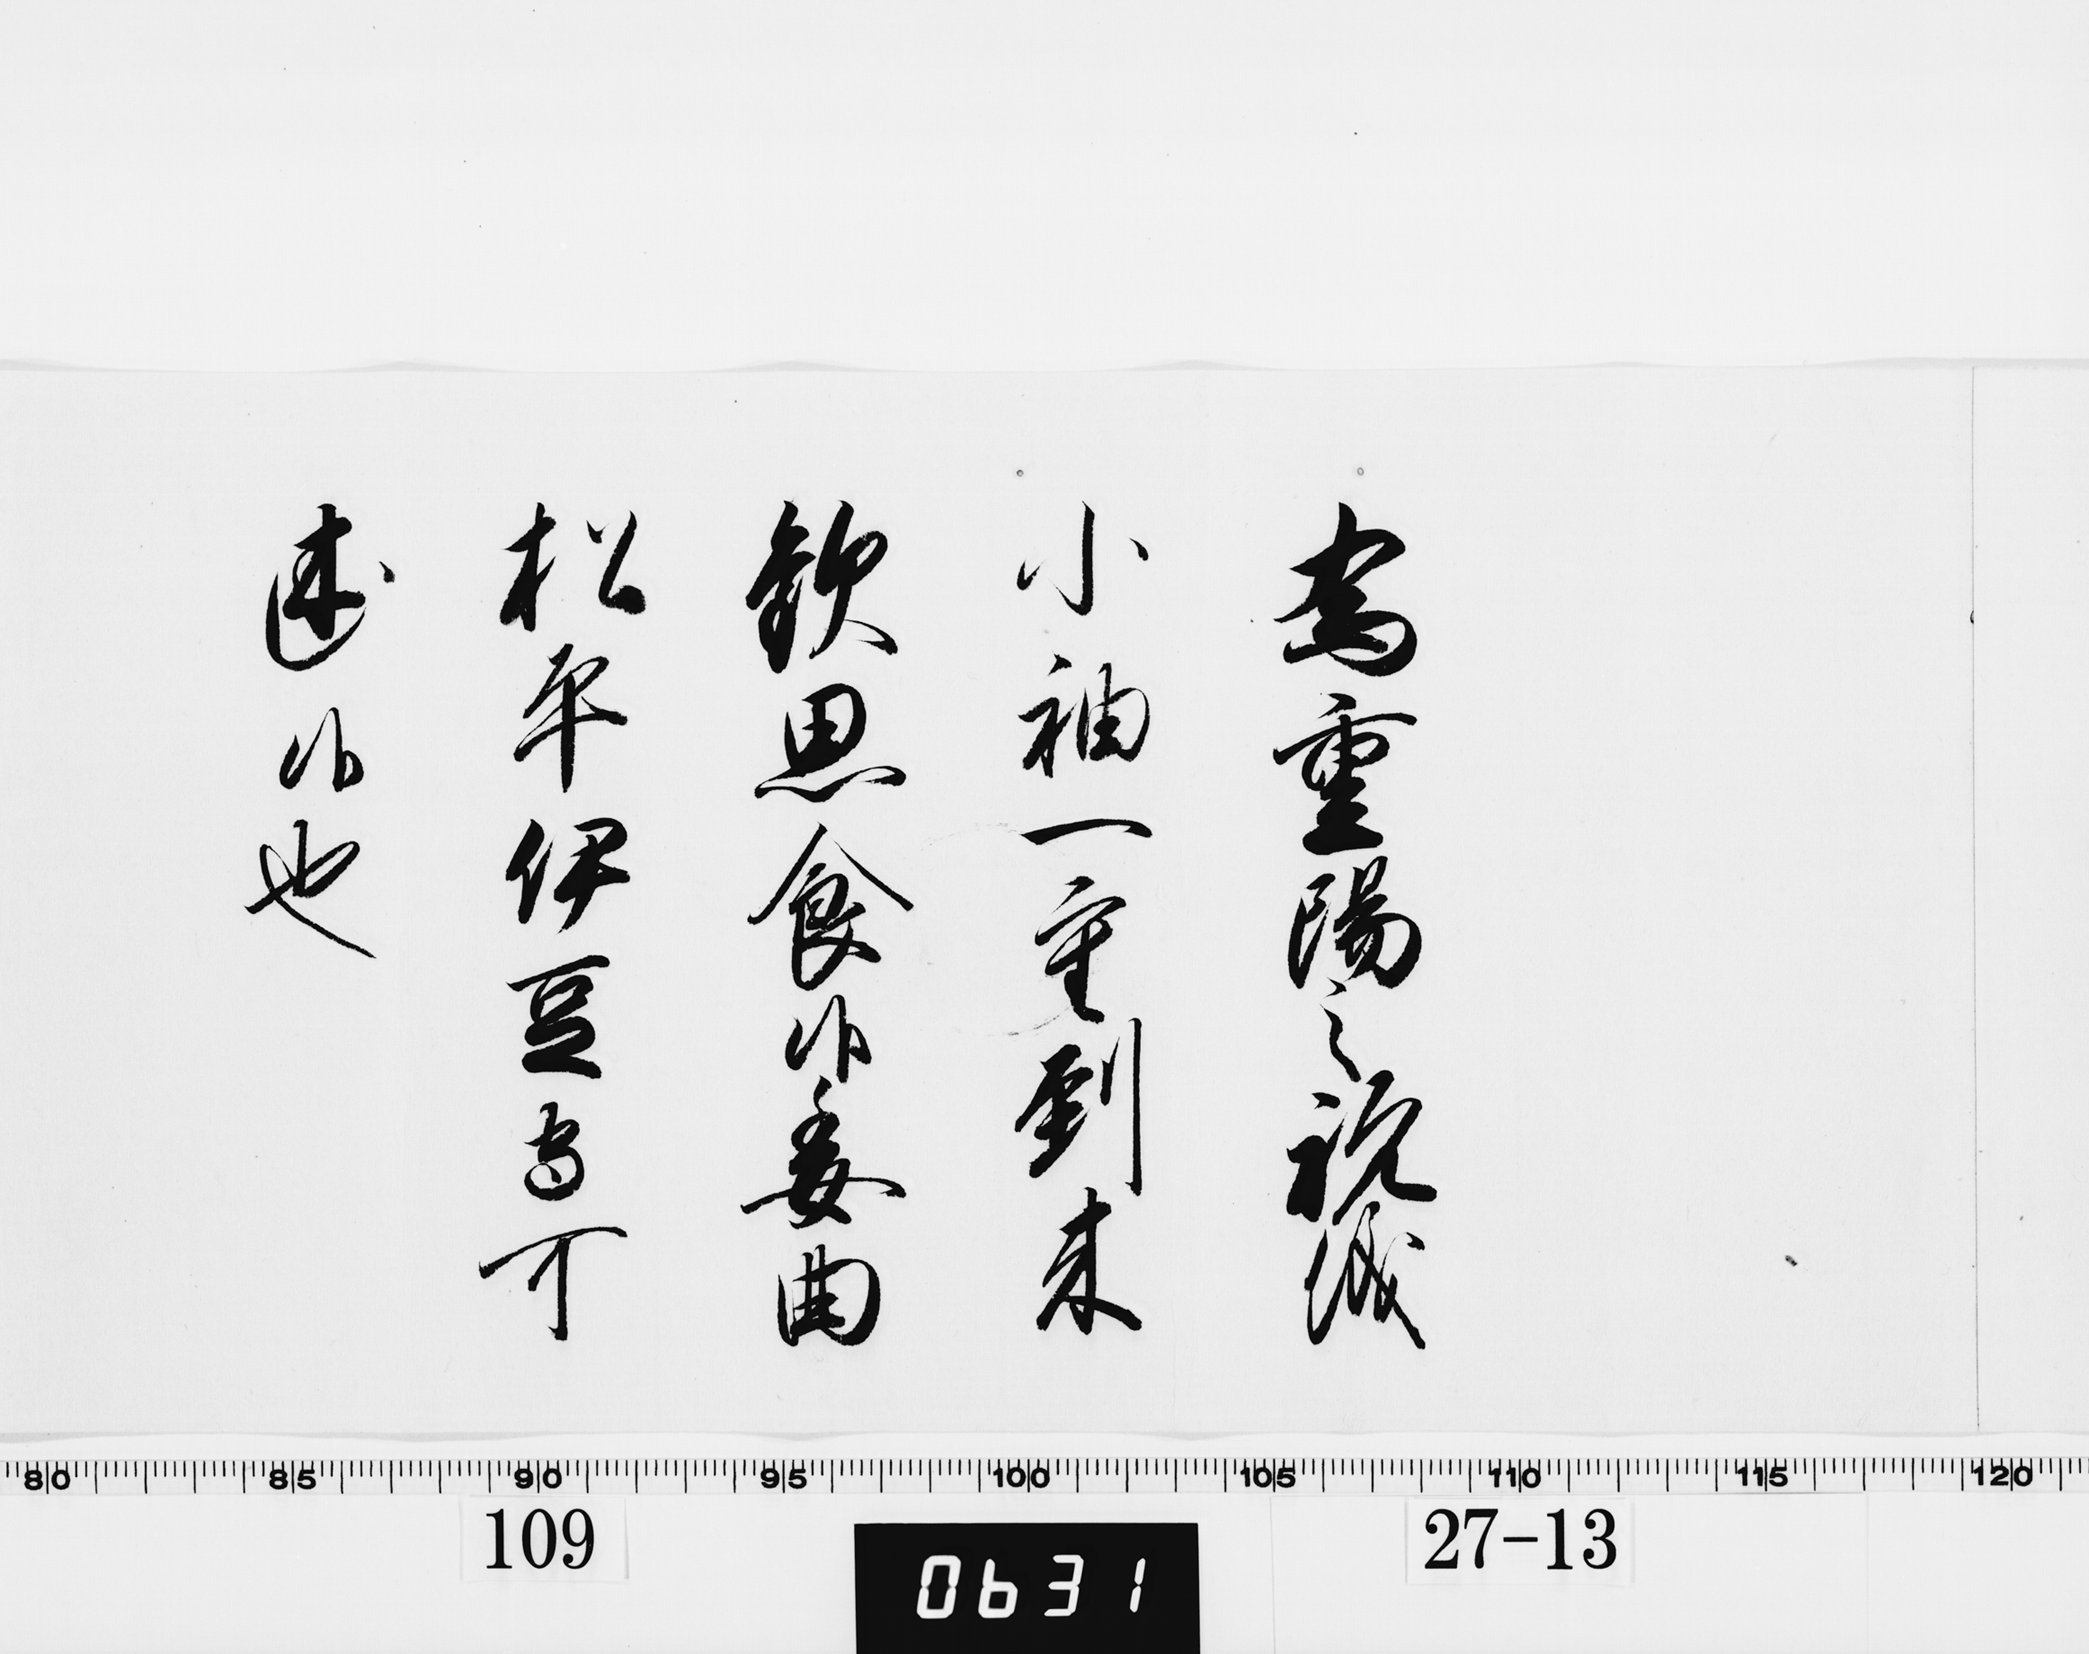 為重陽之祝儀
小袖一重到来
歓思食候委曲
松平伊豆守可
述候也
80 85 90 95 100 105 110 115 120
109
0631
27-13